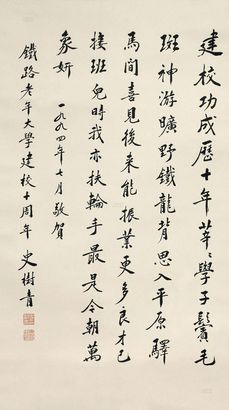 建校功成歷十年莘〻學子鬢毛
斑神游曠野鐵龍背思入平原驛
馬間喜見後來能振業更多良才已
接班兒時我亦扶輪手最是今朝萬
象妍 一九九四年七月敬賀
鐵路老年大學建校十周年 史樹青